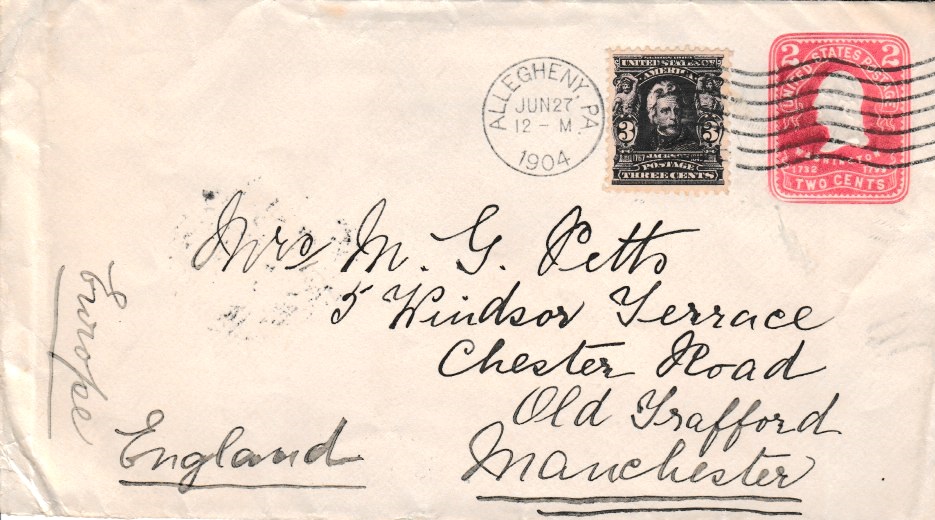 ALLEGHENY, PA.
JUN 27
12 - M
1904
UNITED STATES OF
AMERICA
3 3
POSTAGE
THREE CENTS
2 2
UNITED STATES POSTAGE
1732
TWO CENTS
Mrs M. G. Petts
5 Windsor Terrace
Chester Road
Old Trafford
Manchester
England
Europe